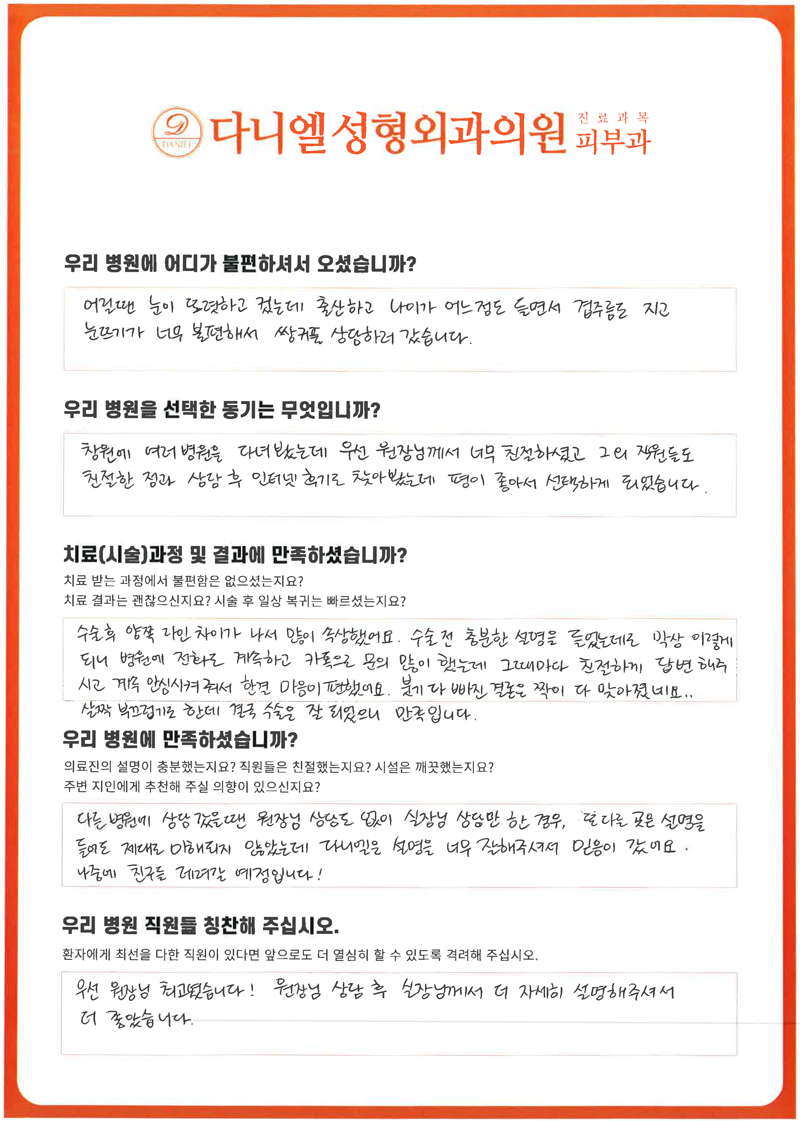 DANIEL
다니엘성형외과의원 진료과목 피부과
우리 병원에 어디가 불편하셔서 오셨습니까?
어릴땐 눈이 또렷하고 컸는데 출산하고 나이가 어느정도 들면서 겹주름도 지고
눈뜨기가 너무 불편해서 쌍커풀 상담하러 갔습니다.
우리 병원을 선택한 동기는 무엇입니까?
창원에 여러병원을 다녀봤는데 우선 원장님께서 너무 친절하셨고 그외 직원들도
친절한 점과 상담 후 인터넷 후기로 찾아봤는데 평이 좋아서 선택하게 되었습니다.
치료(시술)과정 및 결과에 만족하셨습니까?
치료 받는 과정에서 불편함은 없으셨는지요?
치료 결과는 괜찮으신지요? 시술 후 일상 복귀는 빠르셨는지요?
수술후 양쪽 라인 차이가 나서 많이 속상했어요. 수술전 충분한 설명을 들었는데도 막상 이렇게
되니 병원에 전화도 계속하고 카톡으로 문의 많이 했는데 그때마다 친절하게 답변해주
시고 계속 안심시켜줘서 한켠 마음이 편했어요. 붓기 다 빠진 결론은 짝이 다 맞아졌네요..
살짝 부끄럽기도 한데 결국 수술은 잘 되었으니 만족입니다.
우리 병원에 만족하셨습니까?
의료진의 설명이 충분했는지요? 직원들은 친절했는지요? 시설은 깨끗했는지요?
주변 지인에게 추천해 주실 의향이 있으신지요?
다른 병원에 상담 갔을땐 원장님 상담도 없이 실장님 상담만 한 경우, 또 다른 곳은 설명을
들어도 제대로 이해되지 않았는데 다니엘은 설명을 너무 잘해주셔서 믿음이 갔어요.
나중에 친구들 데려갈 예정입니다!
우리 병원 직원들 칭찬해 주십시오.
환자에게 최선을 다한 직원이 있다면 앞으로도 더 열심히 할 수 있도록 격려해 주십시오.
우선 원장님 최고였습니다! 원장님 상담 후 실장님께서 더 자세히 설명해주셔서
더 좋았습니다.